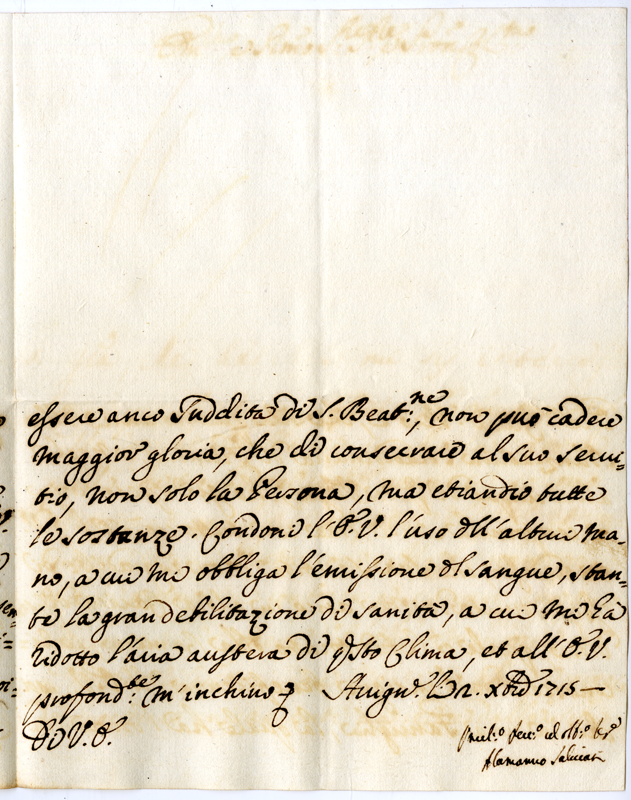 essere anco suddita di S. Beat:ne, non può cadere
maggior gloria, che di consecrare al suo servi-
tio, non solo la Persona, ma etiandio tutte
le sostanze. Condoni l'E.V. l'uso dell'altrui ma-
no, a cui mi obbliga l'emissione del sangue, stan-
te la gran debilitazione di sanità, a cui mi ha
ridotto l'aria austera di qsto Clima, et all'E.V.
profond:te m'inchino Avign.e li 12. xbre 1715 —
Di V.E.
Alamanno Salviati